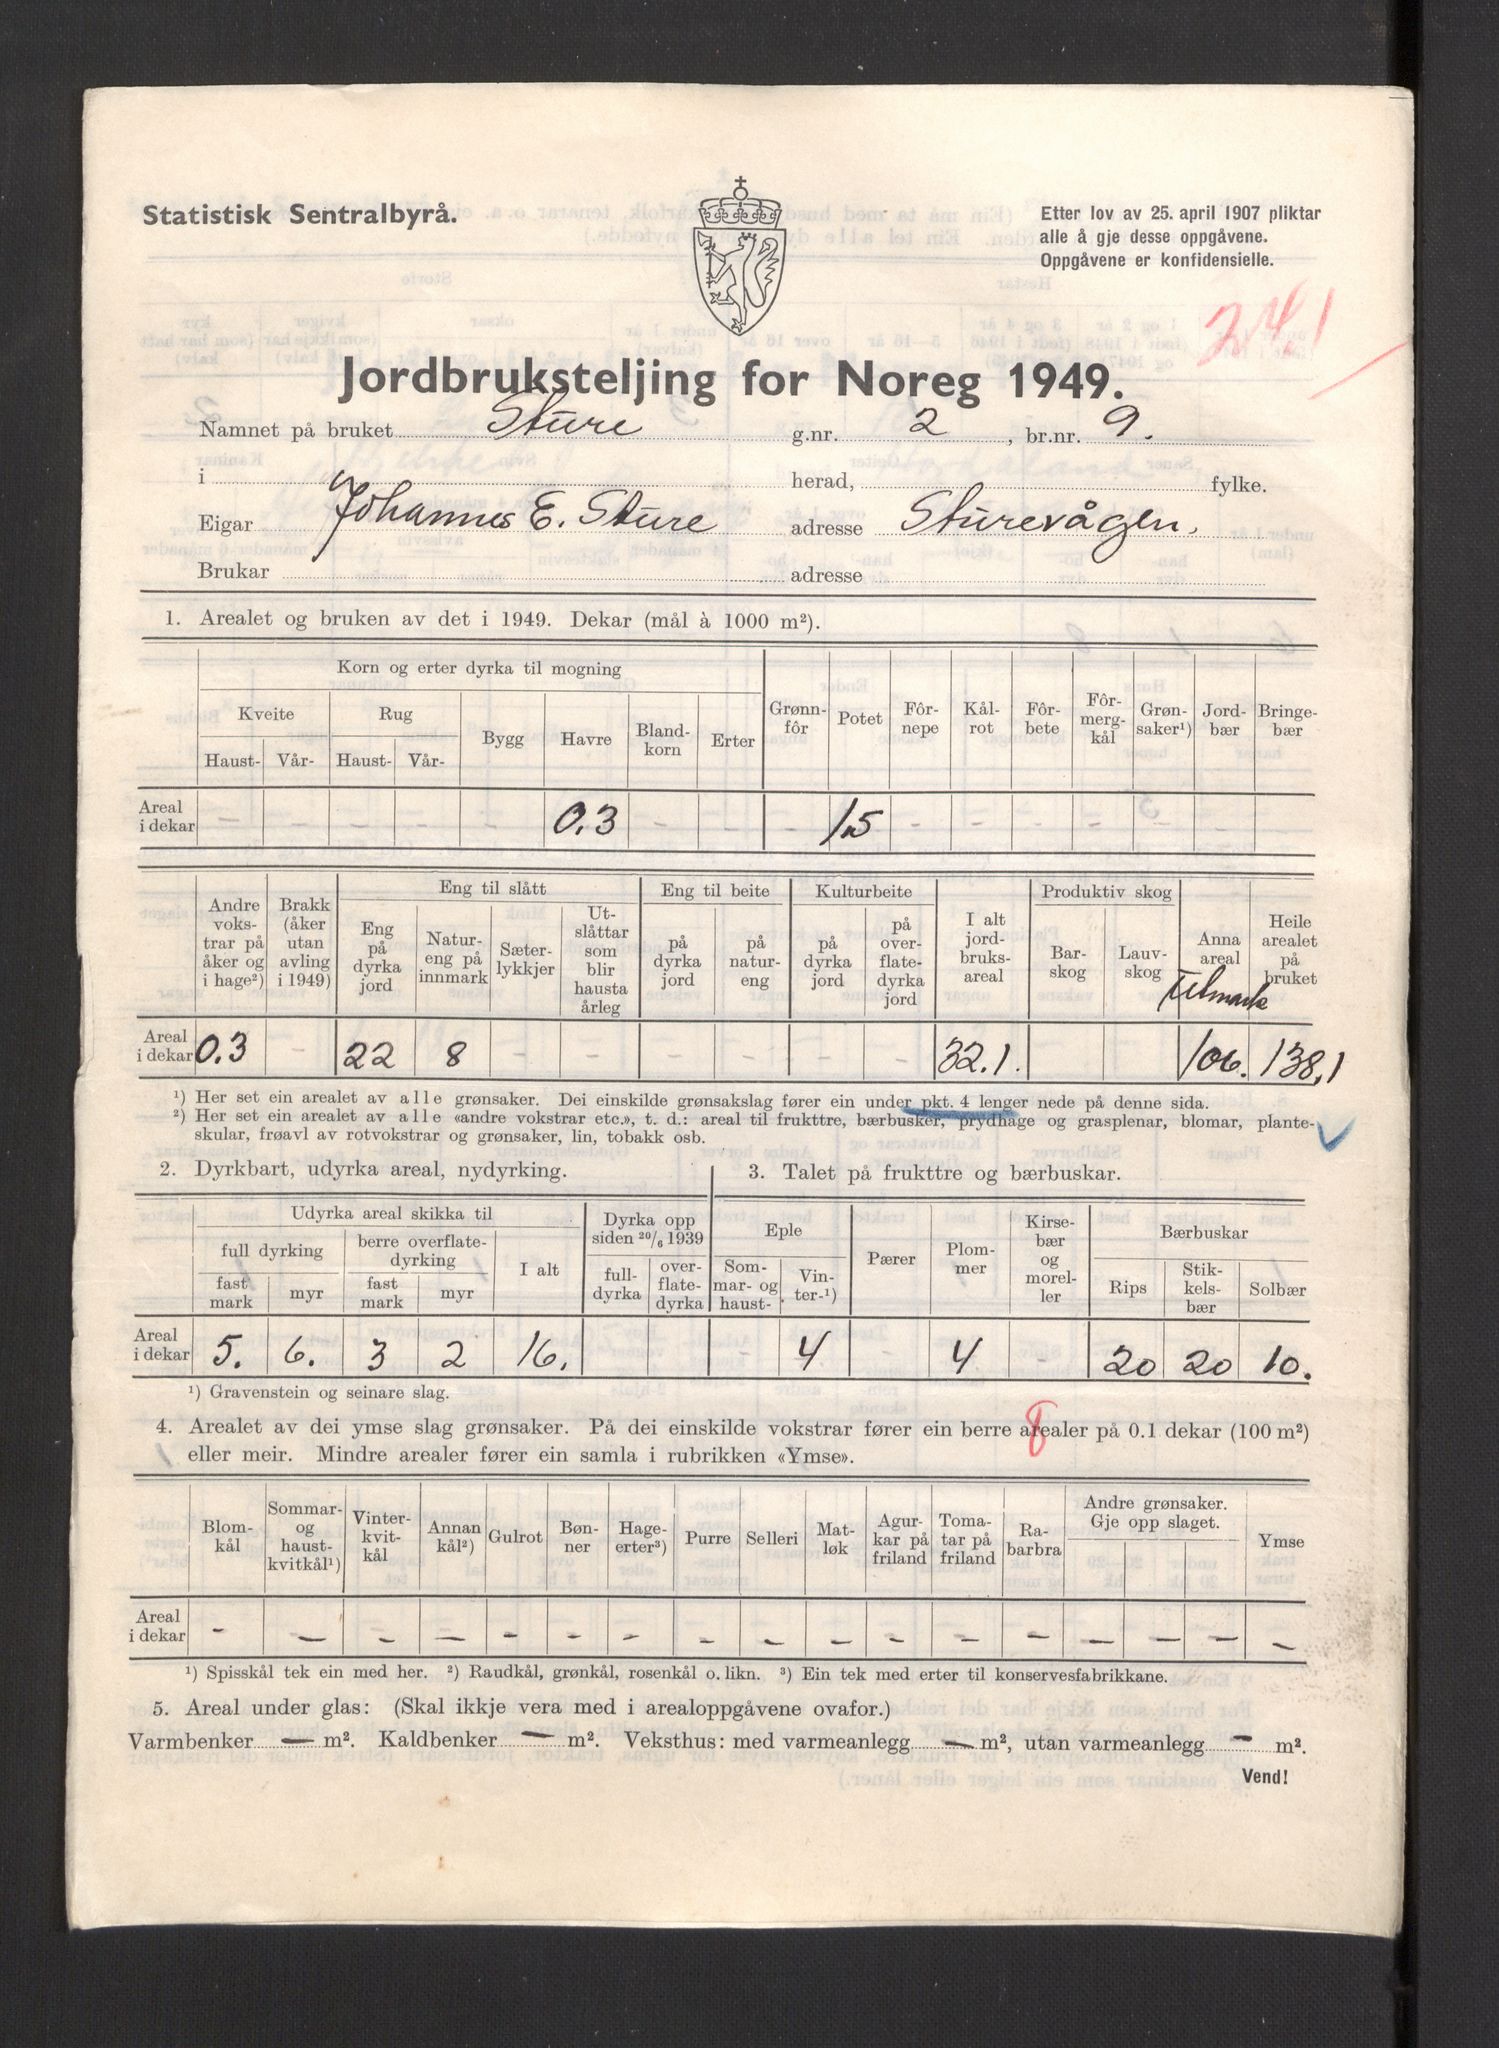 Statistisk Sentralbyrå.
Etter lov av 25. april 1907 pliktar
alle å gje desse oppgåvene.
Oppgåvene er konfidensielle.
24.1
Jordbruksteljing for Noreg 1949.
Namnet på bruket Sture g.nr. 2, br.nr. 9.
i herad, fylke.
Eigar Johannes E. Sture adresse Sturevågen.
Brukar adresse
1. Arealet og bruken av det i 1949. Dekar (mål à 1000 m²).
Korn og erter dyrka til mogning
Kveite Rug Bygg Havre Bland-korn Erter Grønn-fôr Potet Fôr-nepe Kål-rot Fôr-bete Fôr-merg-kål Grøn-saker¹) Jord-bær Bringe-bær
Haust- Vår- Haust- Vår-
Areal i dekar - - - - - 0.3 - - - 1.5 - - - - - - -
Andre voks-trar på åker og i hage²) Brakk (åker utan avling i 1949) Eng til slått Eng til beite Kulturbeite I alt jord-bruks-areal Produktiv skog Anna areal Heile arealet på bruket
Eng på dyrka jord Natur-eng på innmark Sæter-lykkjer Ut-slåttar som blir hausta årleg på dyrka jord på natur-eng på dyrka jord på over-flate-dyrka jord Bar-skog Lauv-skog
Utmark
Areal i dekar 0.3 - 22 8 - - - - - - 32.1. 106. 138,1
¹) Her set ein arealet av alle grønsaker. Dei einskilde grønsakslag fører ein under pkt. 4 lenger nede på denne sida.
²) Her set ein arealet av alle «andre vokstrar etc.», t. d.: areal til frukttre, bærbusker, prydhage og grasplenar, blomar, plante-
skular, frøavl av rotvokstrar og grønsaker, lin, tobakk osb.
2. Dyrkbart, udyrka areal, nydyrking.
3. Talet på frukttre og bærbuskar.
Udyrka areal skikka til Dyrka opp siden 20/6 1939 Eple Pærer Plom-mer Kirse-bær og morel-ler Bærbuskar
full dyrking berre overflate-dyrking I alt full-dyrka over-flate-dyrka Som-mar- og haust- Vin-ter-¹) Rips Stik-kels-bær Solbær
fast mark myr fast mark myr
Areal i dekar 5. 6. 3 2 16. - 4 - 4 - 20 20 10.
¹) Gravenstein og seinare slag.
8
4. Arealet av dei ymse slag grønsaker. På dei einskilde vokstrar fører ein berre arealer på 0.1 dekar (100 m²)
eller meir. Mindre arealer fører ein samla i rubrikken «Ymse».
Blom-kål Sommar- og haust-kvitkål¹) Vinter-kvit-kål Annan kål²) Gulrot Bøn-ner Hage-erter³) Purre Selleri Mat-løk Agur-kar på friland Toma-tar på friland Ra-barbra Andre grønsaker. Gje opp slaget. Ymse
Areal i dekar - - - - - - - - - - - - - - - - -
¹) Spisskål tek ein med her. ²) Raudkål, grønkål, rosenkål o. likn. ³) Ein tek med erter til konservesfabrikkane.
5. Areal under glas: (Skal ikkje vera med i arealoppgåvene ovafor.)
Varmbenker — m². Kaldbenker — m². Veksthus: med varmeanlegg — m², utan varmeanlegg — m².
Vend!